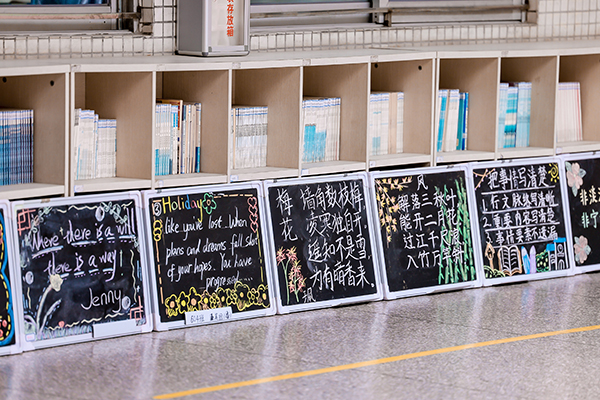 存放箱
Where there is a will
there is a way!
Jenny
Holiday
like you're lost. When
plans and dreams fall shot
of your hopes. You have
梅花
墙角数枝梅
凌寒独自开
遥知不是雪
为有暗香来
风
解落三秋叶
能开二月花
过江千尺浪
入竹万竿斜
把事情写清楚
1.行文脉络写清楚
2.重要内容写清楚
事件要素不遗漏
非淡
非宁